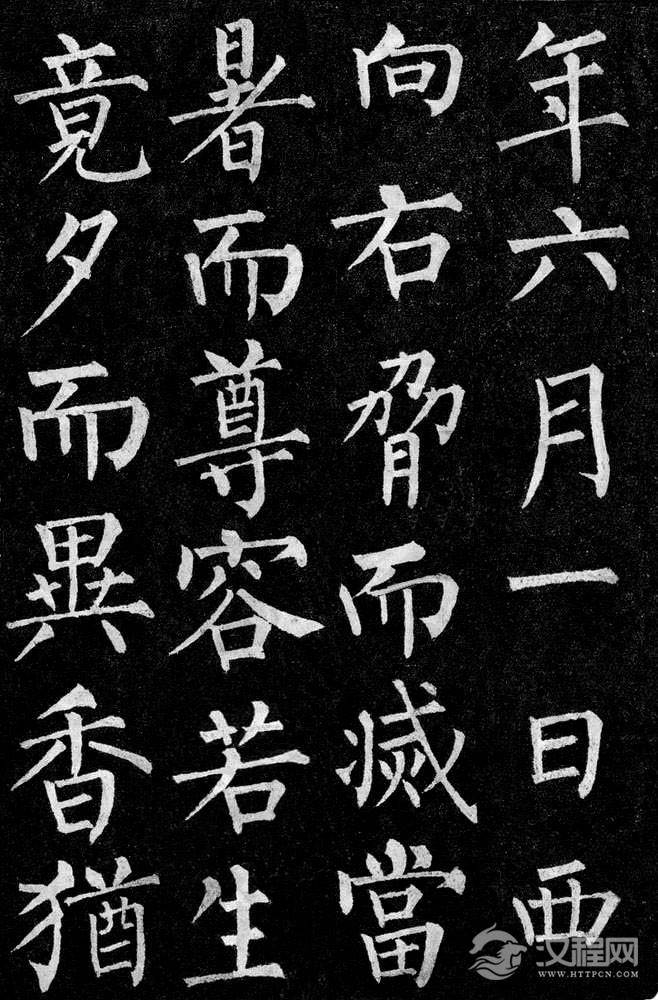 年六月一日西
向右脅而滅當
暑而尊容若生
竟夕而異香猶
汉程网
WWW.HTTPCN.COM